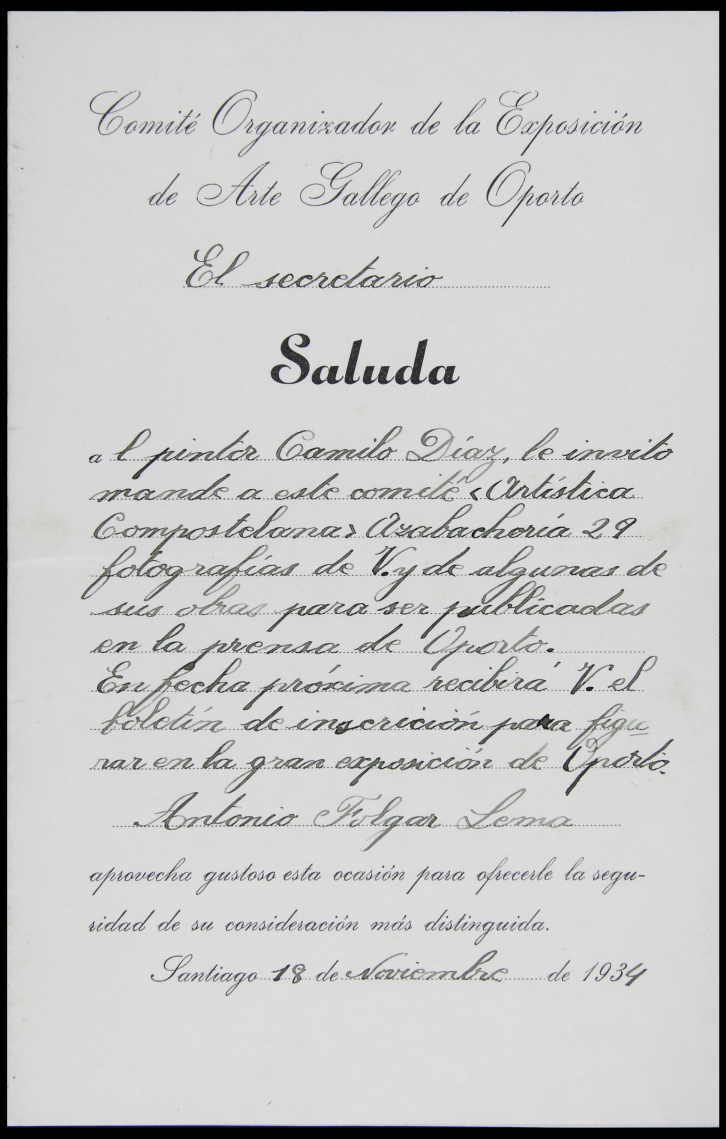 Comité Organizador de la Exposición
de Arte Gallego de Oporto
El secretario
Saluda
al pintor Camilo Díaz, le invito
mande a este comité <Artística
Compostelana> Azabachería 29
fotografías de V. y de algunas de
sus obras para ser publicadas
en la prensa de Oporto.
En fecha próxima recibirá V. el
boletín de inscrición para figu
rar en la gran exposición de Oporto.
Antonio Folgar Lema
aprovecha gustoso esta ocasión para ofrecerle la segu-
ridad de su consideración más distinguida.
Santiago 18 de Noviembre de 1934